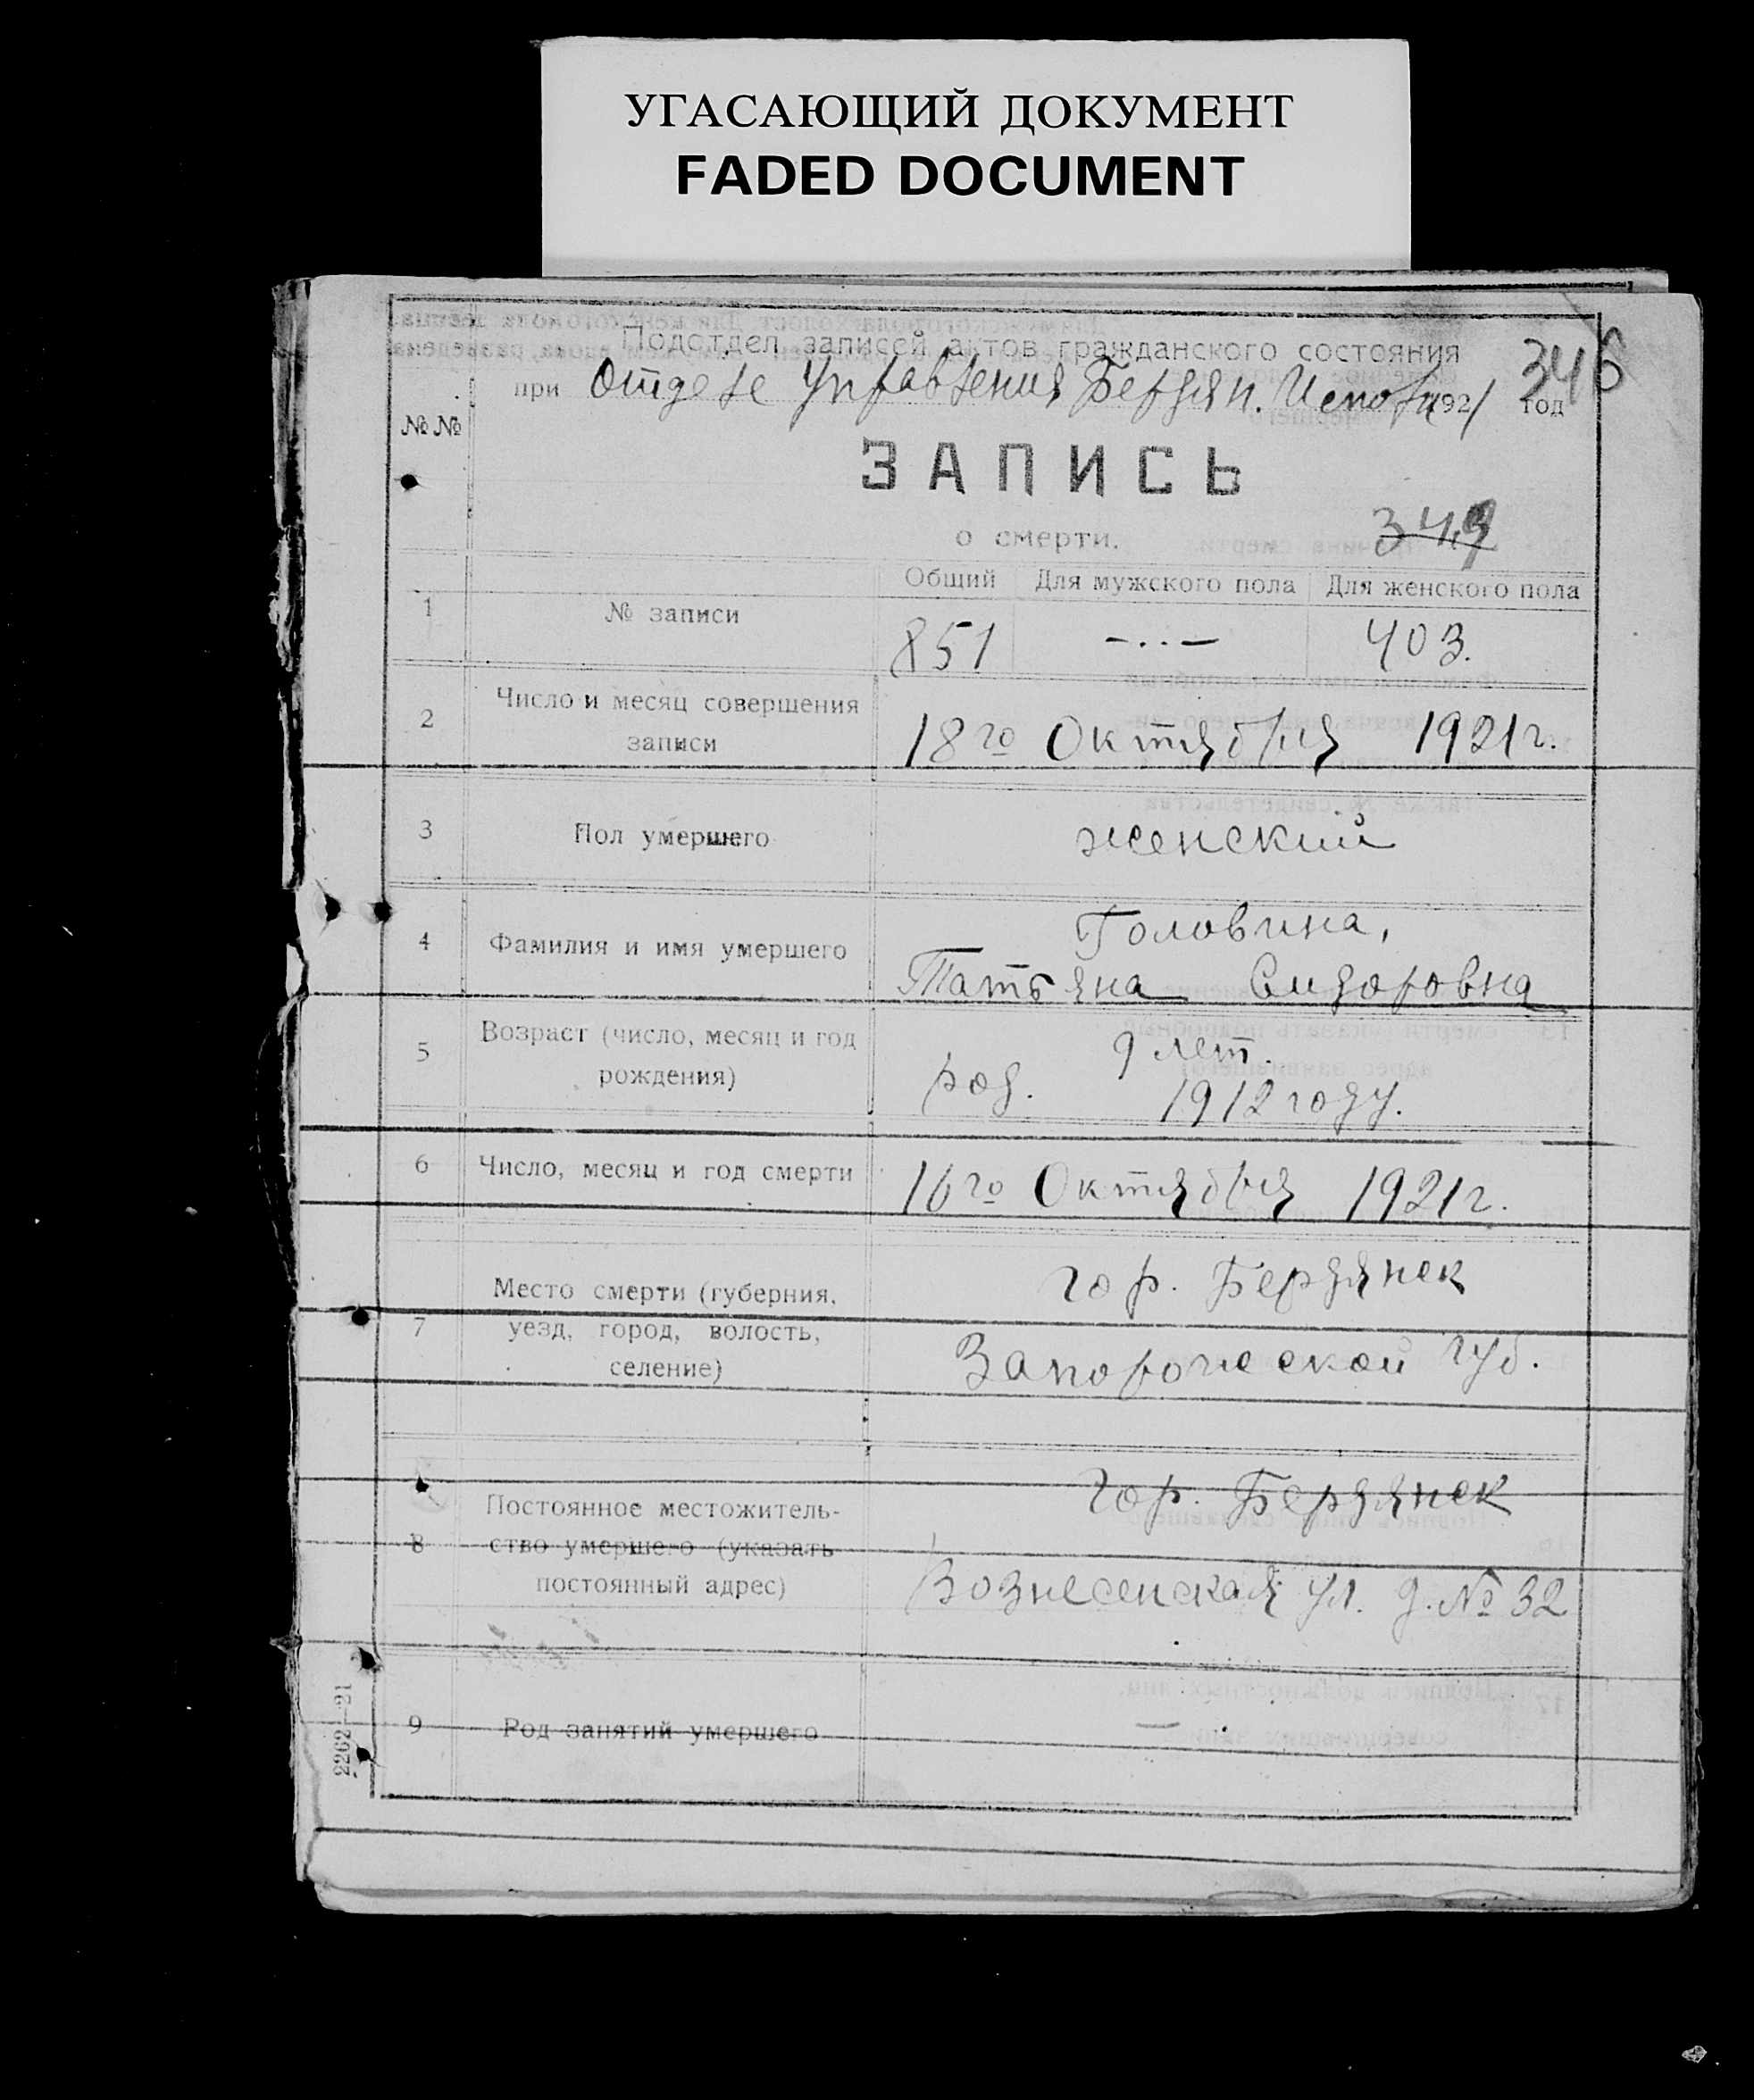 УГАСАЮЩИЙ ДОКУМЕНТ
FADED DOCUMENT
Подотдел записей актов гражданского состояния
346
при Отделе Управления Бердян. Исполк 1921 год
№№
ЗАПИСЬ
о смерти.
349
Общий Для мужского пола Для женского пола
1 № записи 851 —··— 403.
2 Число и месяц совершения
записи
18го Октября 1921г.
3 Пол умершего женский
4 Фамилия и имя умершего
Головина,
Татьяна Сидоровна
5 Возраст (число, месяц и год
рождения)
9 лет.
род. 1912 году.
6 Число, месяц и год смерти 16го Октября 1921г.
7 Место смерти (губерния,
уезд, город, волость,
селение)
гор. Бердянск
Запорожской губ.
8 Постоянное местожитель-
ство умершего (указать
постоянный адрес)
гор. Бердянск
Вознесенская ул. д. № 32
9 Род занятий умершего —
2262—21